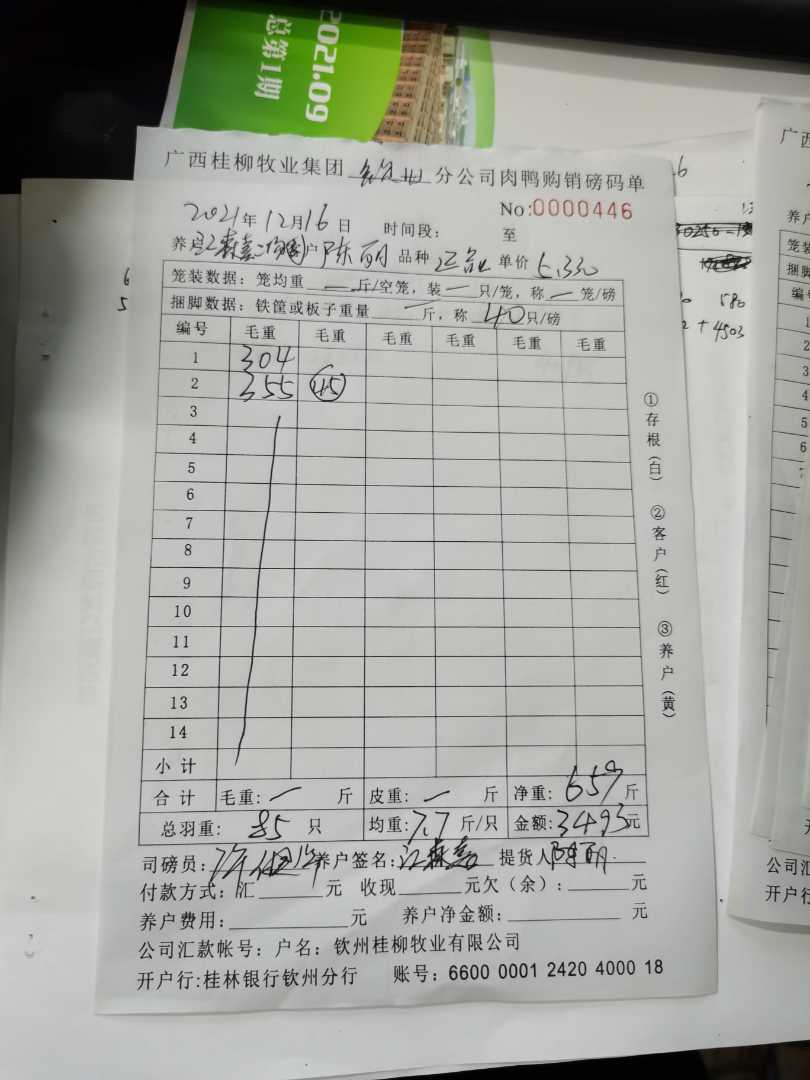 2021.09
总第1期
广西桂柳牧业集团 钦州 分公司肉鸭购销磅码单
No:0000446
2021年12月16日 时间段: 至
养户江森嘉 户陈丽 品种正品 单价5.330
笼装数据: 笼均重 — 斤/空笼, 装 — 只/笼, 称 — 笼/磅
捆脚数据: 铁筐或板子重量 — 斤, 称 40只/磅
编号 毛重 毛重 毛重 毛重 毛重 毛重
1 304
2 355 (45)
3
4
5
6
7
8
9
10
11
12
13
14
小计
合计 毛重: — 斤 皮重: — 斤 净重: 659斤
总羽重: 85 只 均重:7.7斤/只 金额:3493元
司磅员: 养户签名:江森嘉 提货人陈丽
付款方式:汇 元 收现 元欠(余): 元
养户费用: 元 养户净金额: 元
公司汇款帐号: 户名: 钦州桂柳牧业有限公司
开户行:桂林银行钦州分行 账号: 6600 0001 2420 4000 18
①存根(白) ②客户(红) ③养户(黄)
580
+4503
公司汇
开户行